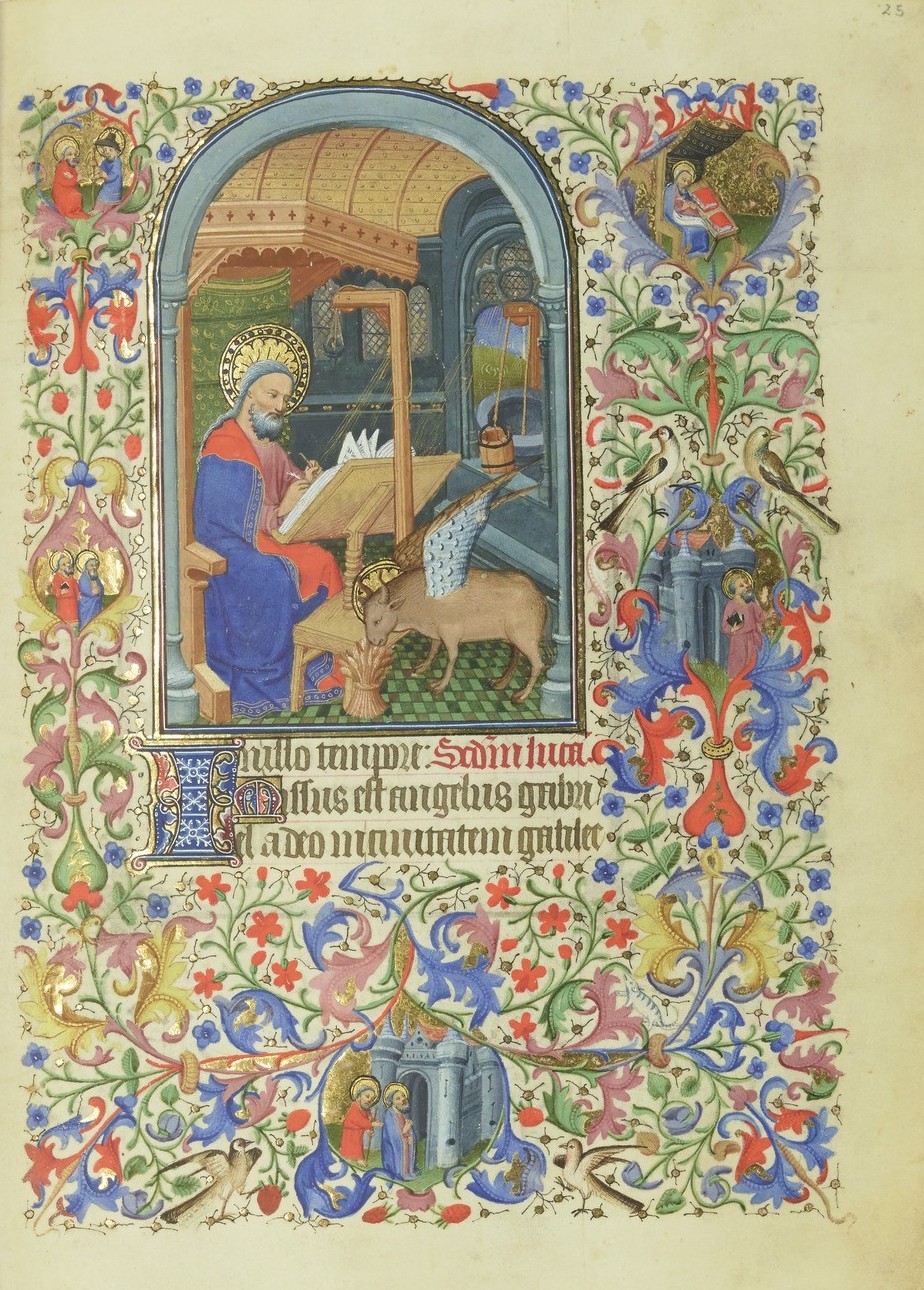 25
In illo tempore: Secdm lucã.
Missus est angelus gabri
el a deo in civitatem galilee